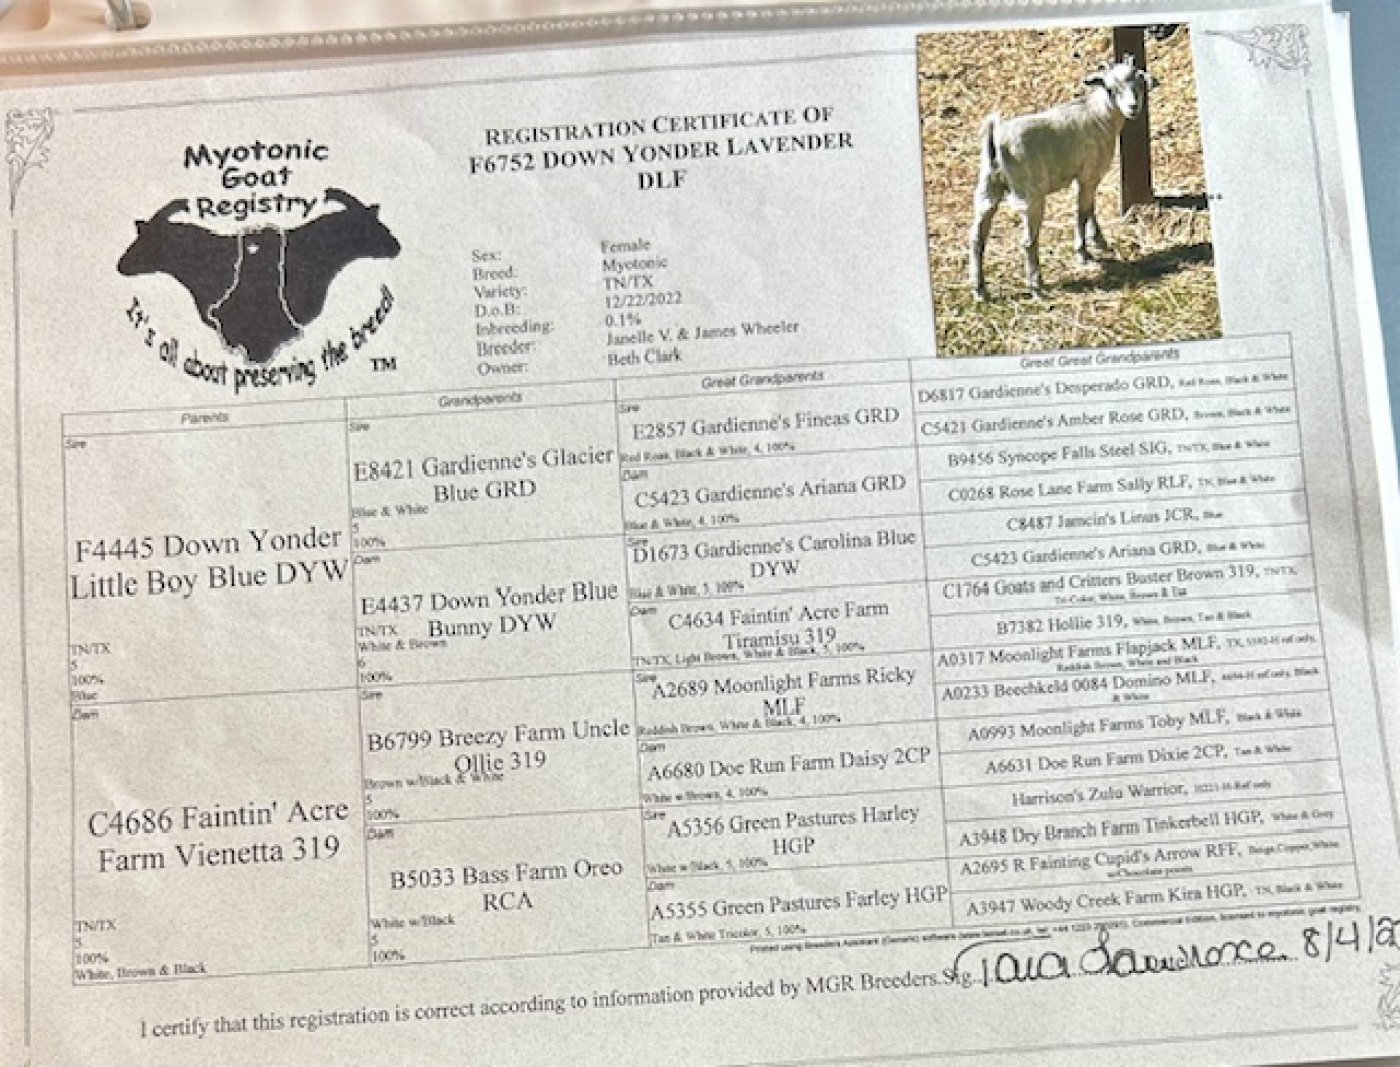 Myotonic
Goat
Registry
It's all about preserving the breed!
TM
REGISTRATION CERTIFICATE OF
F6752 DOWN YONDER LAVENDER
DLF
Sex: Female
Breed: Myotonic
Variety: TN/TX
D.o.B: 12/22/2022
Inbreeding: 0.1%
Breeder: Janelle V. & James Wheeler
Owner: Beth Clark
Parents
Sire
F4445 Down Yonder
Little Boy Blue DYW
TN/TX
5
100%
Blue
Dam
C4686 Faintin' Acre
Farm Vienetta 319
TN/TX
5
100%
White, Brown & Black
Grandparents
Sire
E8421 Gardienne's Glacier
Blue GRD
Blue & White
5
100%
Dam
E4437 Down Yonder Blue
Bunny DYW
TN/TX
White & Brown
6
100%
Sire
B6799 Breezy Farm Uncle
Ollie 319
Brown w/Black & White
5
100%
Dam
B5033 Bass Farm Oreo
RCA
White w/Black
5
100%
Great Grandparents
Sire
E2857 Gardienne's Fineas GRD
Red Roan, Black & White, 4, 100%
Dam
C5423 Gardienne's Ariana GRD
Blue & White, 4, 100%
Sire
D1673 Gardienne's Carolina Blue
DYW
Blue & White, 5, 100%
Dam
C4634 Faintin' Acre Farm
Tiramisu 319
TN/TX, Light Brown, White & Black, 5, 100%
Sire
A2689 Moonlight Farms Ricky
MLF
Reddish Brown, White & Black, 4, 100%
Dam
A6680 Doe Run Farm Daisy 2CP
White w/Brown, 4, 100%
Sire
A5356 Green Pastures Harley
HGP
White w/Black, 5, 100%
Dam
A5355 Green Pastures Farley HGP
Tan & White Tricolor, 5, 100%
Great Great Grandparents
D6817 Gardienne's Desperado GRD, Red Roan, Black & White
C5421 Gardienne's Amber Rose GRD, Brown, Black & White
B9456 Syncope Falls Steel SIG, TN/TX, Blue & White
C0268 Rose Lane Farm Sally RLF, TN, Blue & White
C8487 Jamcin's Linus JCR, Blue
C5423 Gardienne's Ariana GRD, Blue & White
C1764 Goats and Critters Buster Brown 319, TN/TX,
Tri-Color, White, Brown & Tan
B7382 Hollie 319, White, Brown, Tan & Black
A0317 Moonlight Farms Flapjack MLF, TX, ref only,
Reddish Brown, White and Black
A0233 Beechkeld 0084 Domino MLF, ref only, Black
& White
A0993 Moonlight Farms Toby MLF, Black & White
A6631 Doe Run Farm Dixie 2CP, Tan & White
Harrison's Zulu Warrior, Ref only
A3948 Dry Branch Farm Tinkerbell HGP, White & Grey
A2695 R Fainting Cupid's Arrow RFF, Beige, Copper, White
w/Chocolate points
A3947 Woody Creek Farm Kira HGP, TN, Black & White
Printed using Breeders Assistant (Generic) software Commercial Edition, licensed to myotonic goat registry
I certify that this registration is correct according to information provided by MGR Breeders. Sig. Tara Lawrence 8/4/2